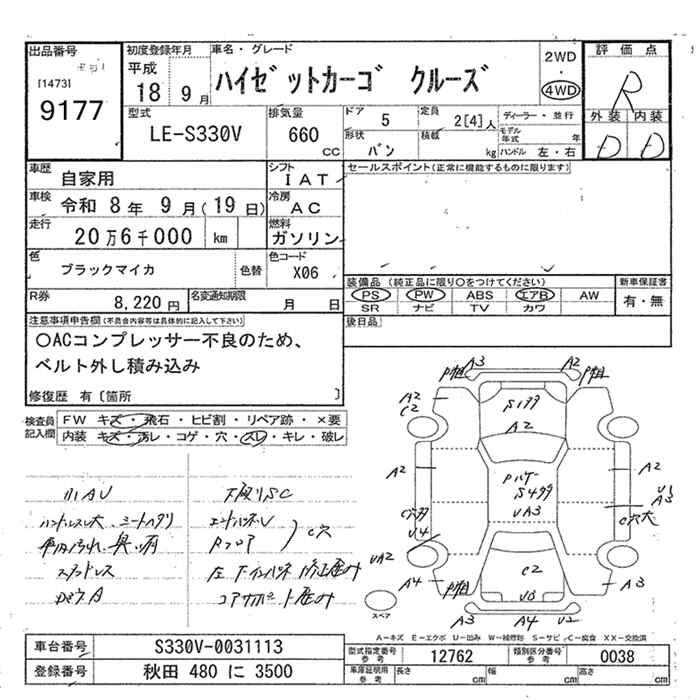 出品番号
[1473]
9177
初度登録年月
平成
18 9月
車名・グレード
ハイゼットカーゴ クルーズ
2WD
・
4WD
評価点
R
外装 内装
D D
型式
LE-S330V
排気量
660
CC
ドア
5
定員
2[4]人
形状
バン
積載
kg
ディーラー・並行
モデル年式 年
ハンドル 左・右
車歴
自家用
シフト
IAT
セールスポイント(正常に機能するものに限ります)
車検
令和 8年 9月(19日)
冷房
AC
走行
20万6千000 km
燃料
ガソリン
色
ブラックマイカ
色替
色コード
X06
装備品 (純正品に限り○をつけてください)
PS PW ABS エアB AW
SR ナビ TV カワ
新車保証書
有・無
R券
8,220円
名変通知期限
月 日
後日品
注意事項申告欄(不具合内容等は具体的に記入して下さい)
○ACコンプレッサー不良のため、
ベルト外し積み込み
修復歴 有〔箇所 〕
検査員記入欄
FW キズ・飛石・ヒビ割・リペア跡・×要
内装 キズ・汚レ・コゲ・穴・スレ・キレ・破レ
小AU
下廻りSC
C穴
スタッドレス
コアサポート歪み
A3 A2
A2
C2
S1
A2
A2
A2
UA3
C穴大
U4
UA2
A4
C2
U3
A3
A3 A4 U2
スペア
A-キズ E-エクボ U-凹み W-補修跡 S-サビ C-腐食 XX-交換済
車台番号
S330V-0031113
型式指定番号
参考
12762
類別区分番号
参考
0038
登録番号
秋田 480 に 3500
車庫証明用
参考
長さ cm 幅 cm 高さ cm